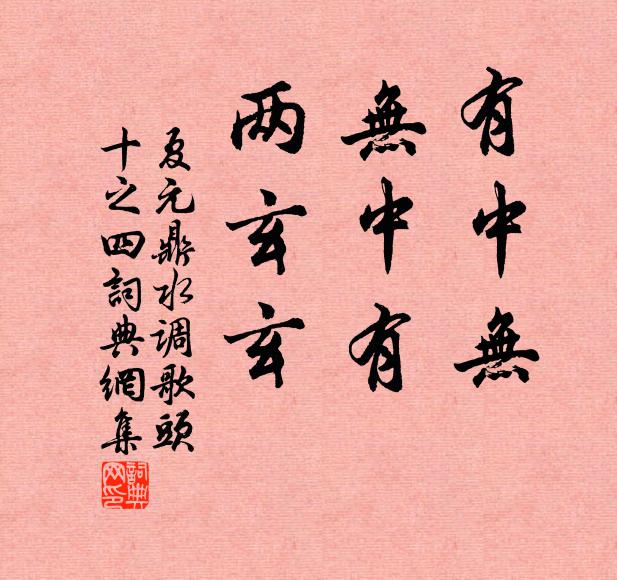 有中無
無中有
两玄玄
夏元鼎水调歌頭
十之四詞典網集
詞典
网印